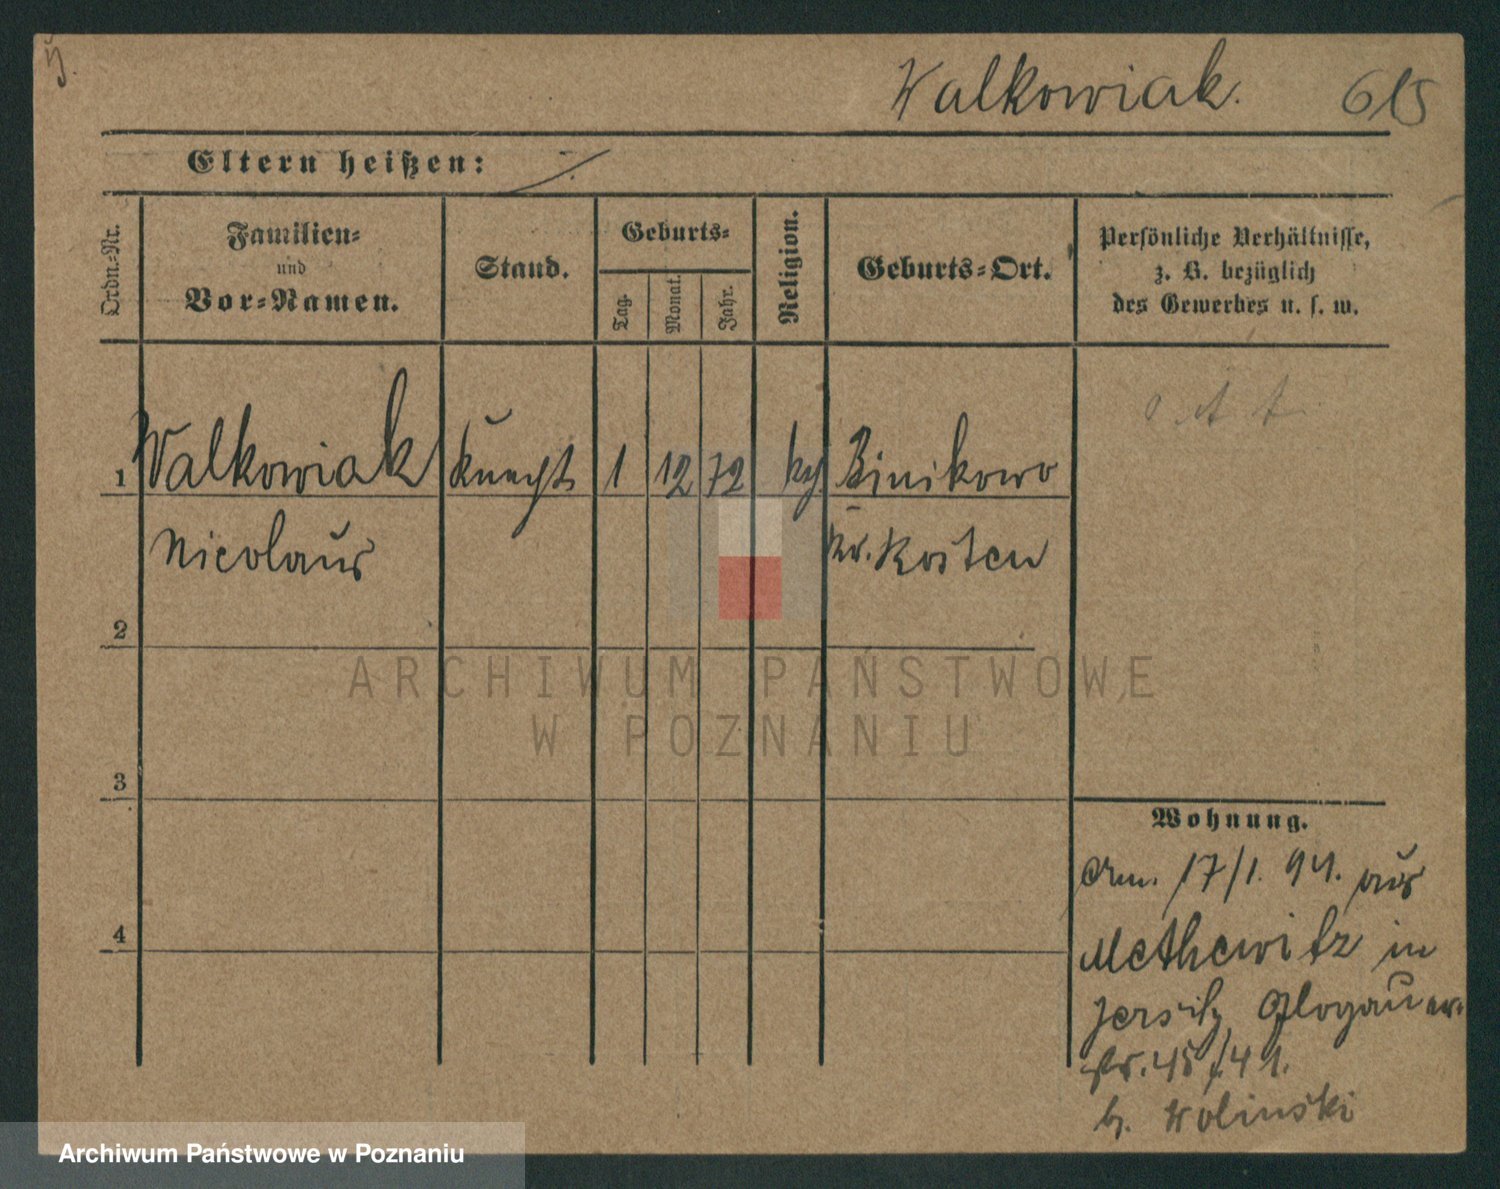 J.
Walkowiak. 615
Eltern heißen: ·/.
Ordn.-Nr.
Familien-
und
Vor-Namen.
Stand.
Geburts-
Tag.
Monat.
Jahr.
Religion.
Geburts-Ort.
Persönliche Verhältnisse,
z. B. bezüglich
des Gewerbes u. s. w.
1 Walkowiak Knecht 1 12 72 kg Binikowo
Nicolaus Kr. Kosten
2
3
4
Wohnung.
Am. 17/1. 94. aus
Methewitz in
Jersitz Glogauer-
str. 45/41.
b. Wolinski
ARCHIWUM PAŃSTWOWE
W POZNANIU
Archiwum Państwowe w Poznaniu